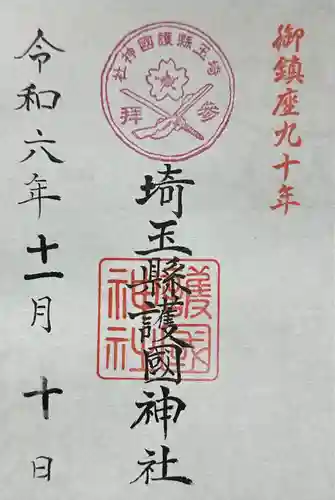 御鎮座九十年
埼玉縣護國神社
参拝
埼玉縣護國神社
護國神社
令和六年十一月十日